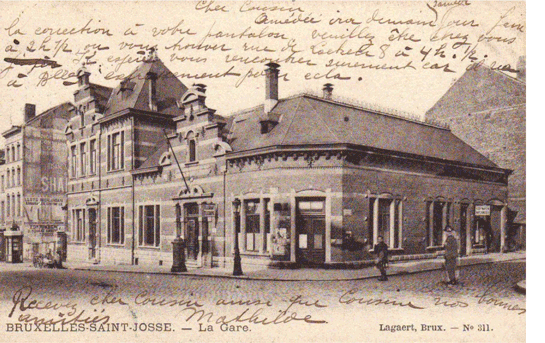 Cher Cousin
Janvier
Amédée ira demain pour faire
la correction à votre pantalon, veuillez être chez vous
à 2h ½ ou vous trouver rue de 8 à 4h ½
vous rencontrer surement car
à pour cela.
SHA
Recevez cher Cousin ainsi que Cousine nos bonnes
amitiés Mathilde
BRUXELLES-SAINT-JOSSE. — La Gare. Lagaert, Brux. — No 311.